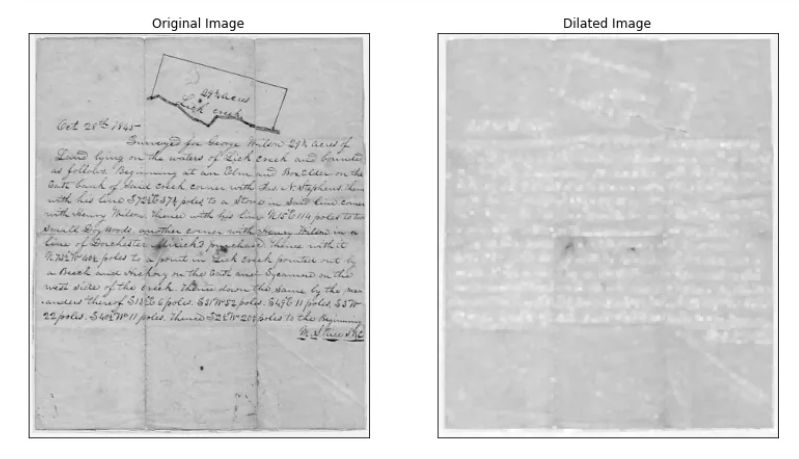 Original Image
Dilated Image
29¾ acres
Lick creek
Oct 28th 1845
Surveyed for George Wilson 29¾ acres of
Land lying on the waters of Lick creek and bounded
as follows. Beginning at an Elm and Box Elder on the
East bank of said creek corner with Jas N Stephens thence
with his line poles to a Stone in said line corner
with Henry Wilson. thence with his line N15°E 114 poles to two
small Dogwoods. another corner with Henry Wilson in a
line of Dorchester purchase thence with it
poles to a point in Lick creek pointed out by
a Beech and Hickory on the East and Sycamore on the
west side of the creek. thence down the same by the me-
anders thereof 6 poles. 52 poles. 11 poles.
22 poles. 11 poles. thence poles to the Beginning